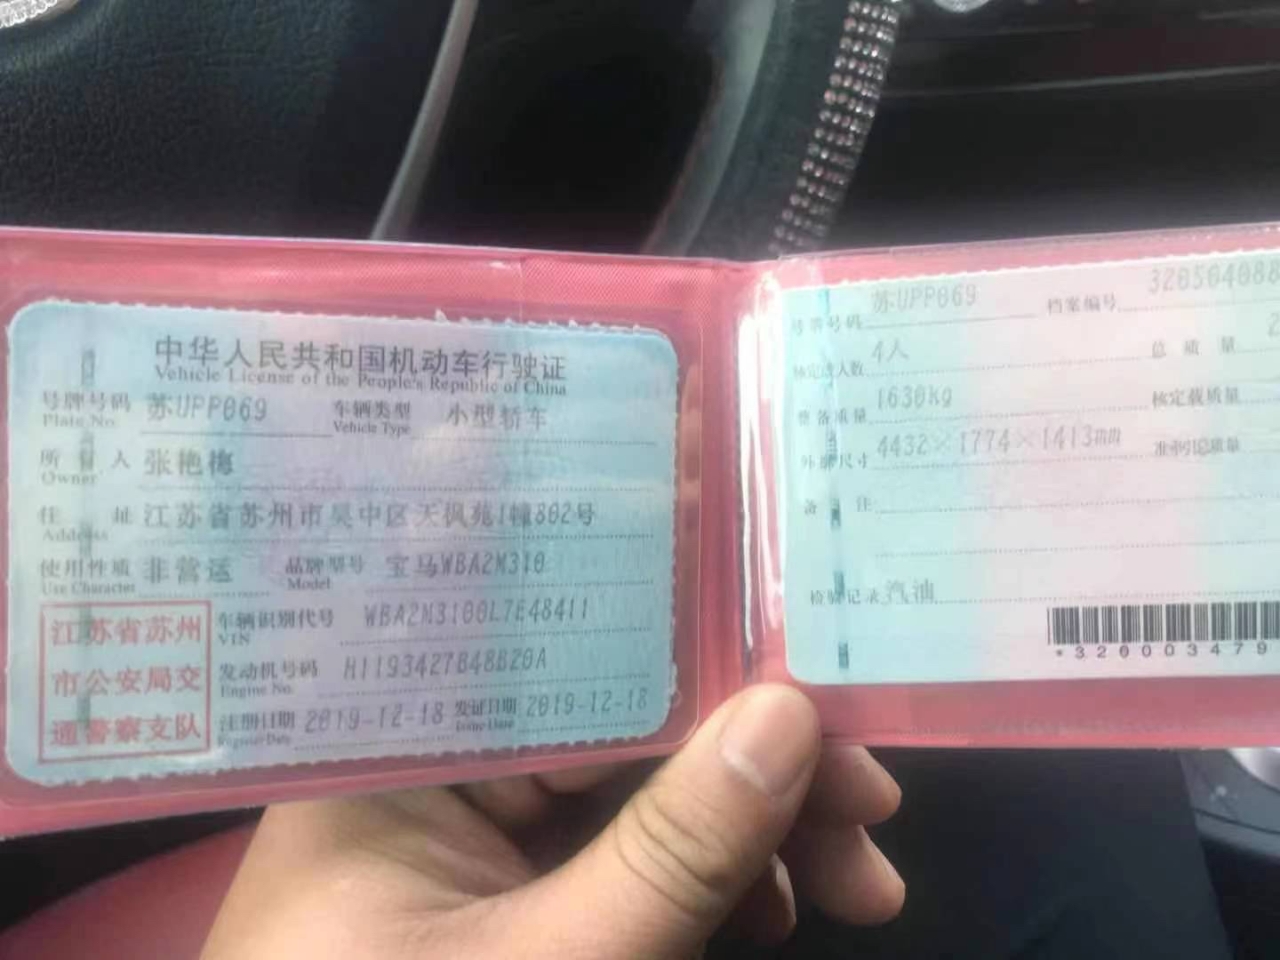 中华人民共和国机动车行驶证
Vehicle License of the People's Republic of China
号牌号码 苏UPP069 车辆类型 小型轿车
Plate No. Vehicle Type
所有人 张艳梅
Owner
住址 江苏省苏州市吴中区天枫苑1幢802号
Address
使用性质 非营运 品牌型号 宝马WBA2M310
Use Character Model
江苏省苏州
市公安局交
通警察支队
车辆识别代号 WBA2M3100L7E48411
VIN
发动机号码 H1193427B48B20A
Engine No.
注册日期 2019-12-18 发证日期 2019-12-18
Register Date Issue Date
号牌号码 苏UPP069 档案编号 320504088
核定载人数 4人 总质量 2
整备质量 1630kg 核定载质量
外廓尺寸 4432×1774×1413mm 准牵引总质量
备注
检验记录 汽油
*320003479